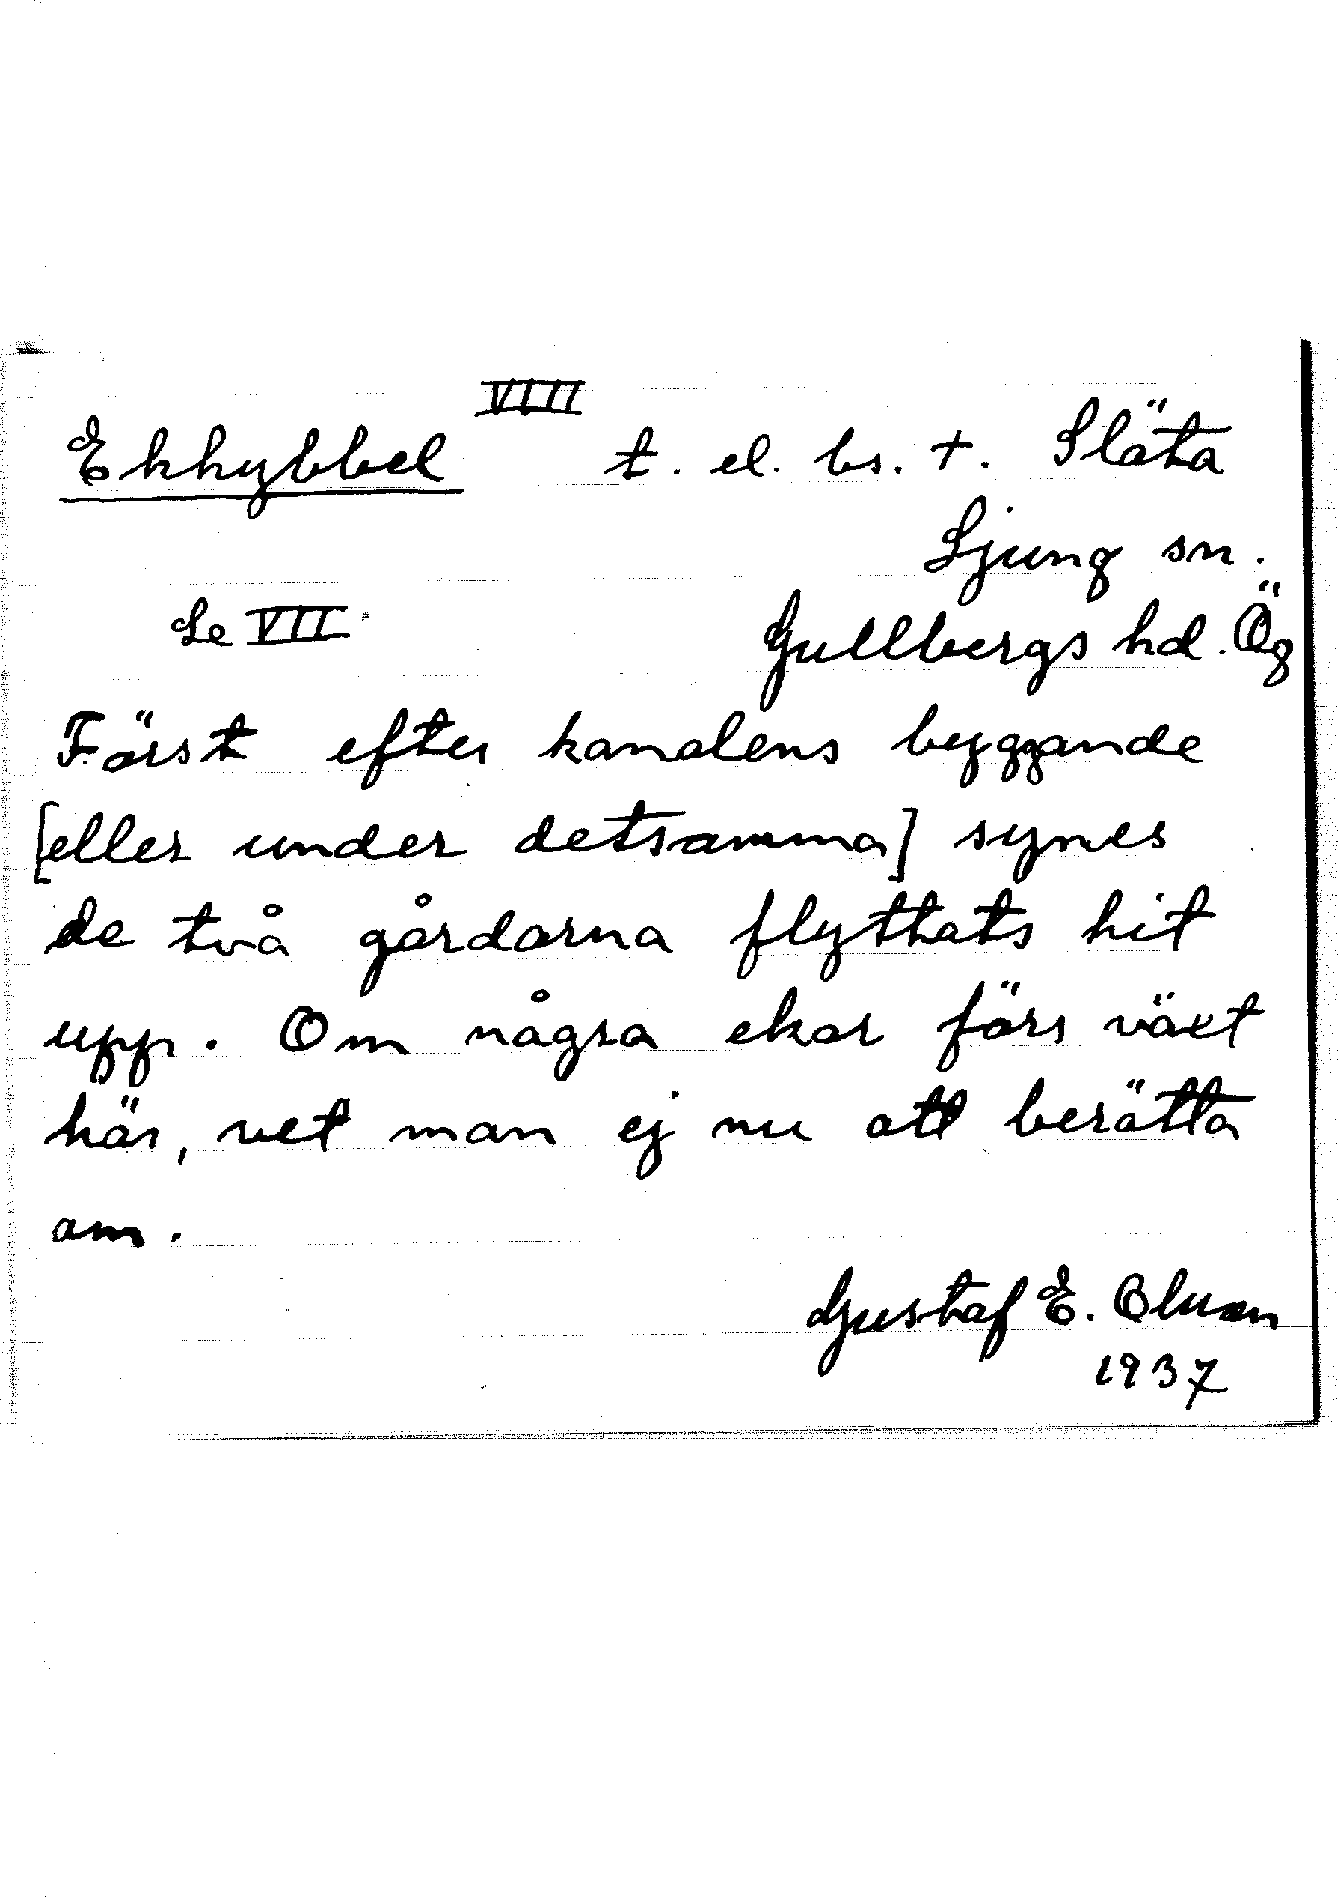 Ekkybbel VIII t. el. bs. +. Släta
Ljung sn.
Se VII. Gullbergs hd. Ög
Först efter kanalens byggande
[eller under detsamma] synes
de två gårdarna flyttats hit
upp. Om några ekar förr växt
här, vet man ej nu att berätta
om.
Gustaf E.
1937